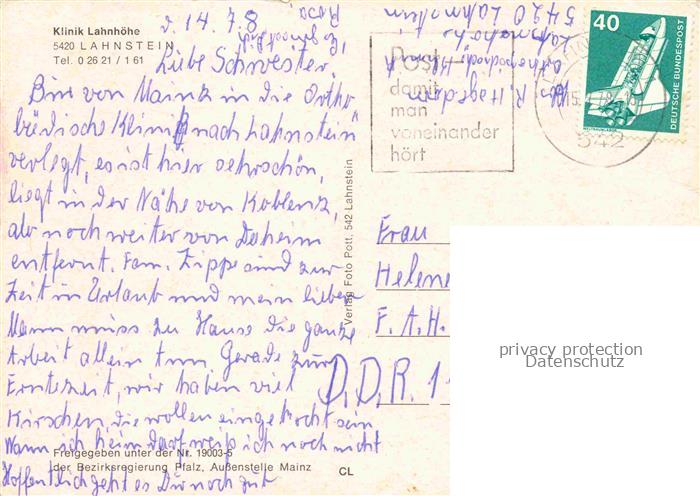 Klinik Lahnhöhe
5420 LAHNSTEIN
Tel. 0 26 21 / 1 61
d. 14. 7. 8
Liebe Schwester,
Bin von Mainz in die Ortho
bädische Klinik nach Lahnstein
verlegt, es ist hier sehr schön,
liegt in der Nähe von Koblenz,
aber noch weiter von Daheim
entfernt. Fam. Zippe sind zur
Zeit in Urlaub und mein lieber
Mann muss zu Hause die ganze
Arbeit allein tun. Gerade zur
Erntezeit, wir haben viel
Kirschen, die wollen eingekocht sein
Wann ich heim darf weiß ich noch nicht
Hoffentlich geht es Dir noch gut
Freigegeben unter der Nr. 19003-5
der Bezirksregierung Pfalz, Außenstelle Mainz
CL
Verlag Foto Pott, 542 Lahnstein
R. Hagedorn
orthopädische Klinik
Lahnhöhe
5420 Lahnstein
Post
damit
man
voneinander
hört
542
40
DEUTSCHE BUNDESPOST
Frau
Helene
F. A. H.
D. D. R. 1
privacy protection
Datenschutz